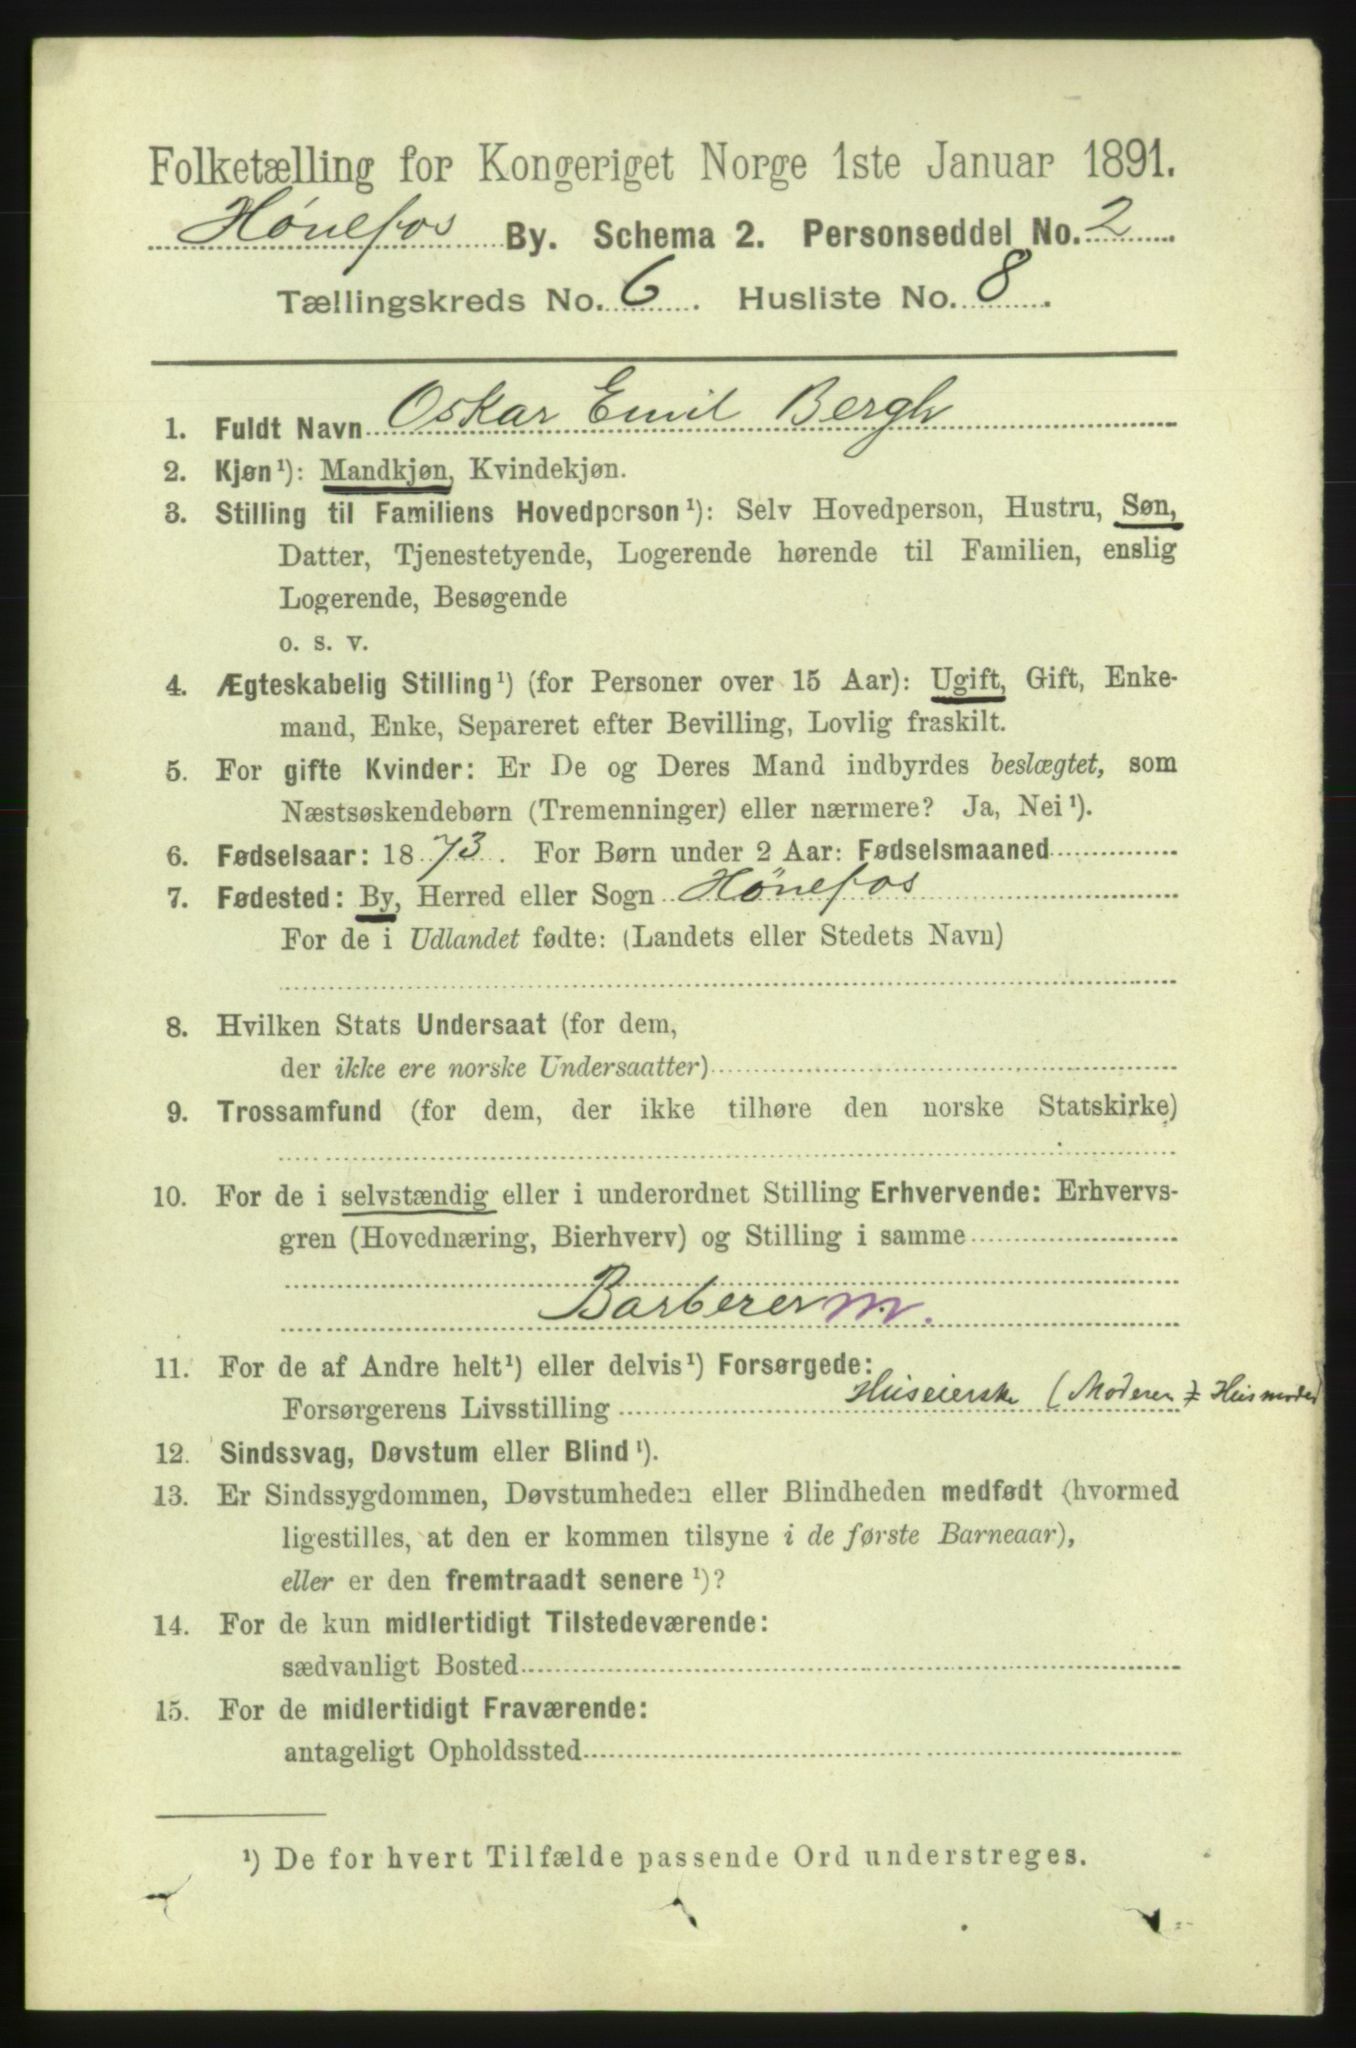 Folketælling for Kongeriget Norge 1ste Januar 1891.
Hönefos By. Schema 2. Personseddel No. 2
Tællingskreds No. 6. Husliste No. 8.
1. Fuldt Navn Oskar Emil Bergh
2. Kjøn¹): Mandkjøn, Kvindekjøn.
3. Stilling til Familiens Hovedperson¹): Selv Hovedperson, Hustru, Søn,
Datter, Tjenestetyende, Logerende hørende til Familien, enslig
Logerende, Besøgende
o. s. v.
4. Ægteskabelig Stilling¹) (for Personer over 15 Aar): Ugift, Gift, Enke-
mand, Enke, Separeret efter Bevilling, Lovlig fraskilt.
5. For gifte Kvinder: Er De og Deres Mand indbyrdes beslægtet, som
Næstsøskendebørn (Tremenninger) eller nærmere? Ja, Nei¹).
6. Fødselsaar: 1873. For Børn under 2 Aar: Fødselsmaaned
7. Fødested: By, Herred eller Sogn Hönefos
For de i Udlandet fødte: (Landets eller Stedets Navn)
8. Hvilken Stats Undersaat (for dem,
der ikke ere norske Undersaatter)
9. Trossamfund (for dem, der ikke tilhøre den norske Statskirke)
10. For de i selvstændig eller i underordnet Stilling Erhvervende: Erhvervs-
gren (Hovednæring, Bierhverv) og Stilling i samme
Barberer m.
11. For de af Andre helt¹) eller delvis¹) Forsørgede:
Forsørgerens Livsstilling Huseierske (Moderen ≠ Husmoder)
12. Sindssvag, Døvstum eller Blind¹).
13. Er Sindssygdommen, Døvstumheden eller Blindheden medfødt (hvormed
ligestilles, at den er kommen tilsyne i de første Barneaar),
eller er den fremtraadt senere¹)?
14. For de kun midlertidigt Tilstedeværende:
sædvanligt Bosted
15. For de midlertidigt Fraværende:
antageligt Opholdssted
¹) De for hvert Tilfælde passende Ord understreges.